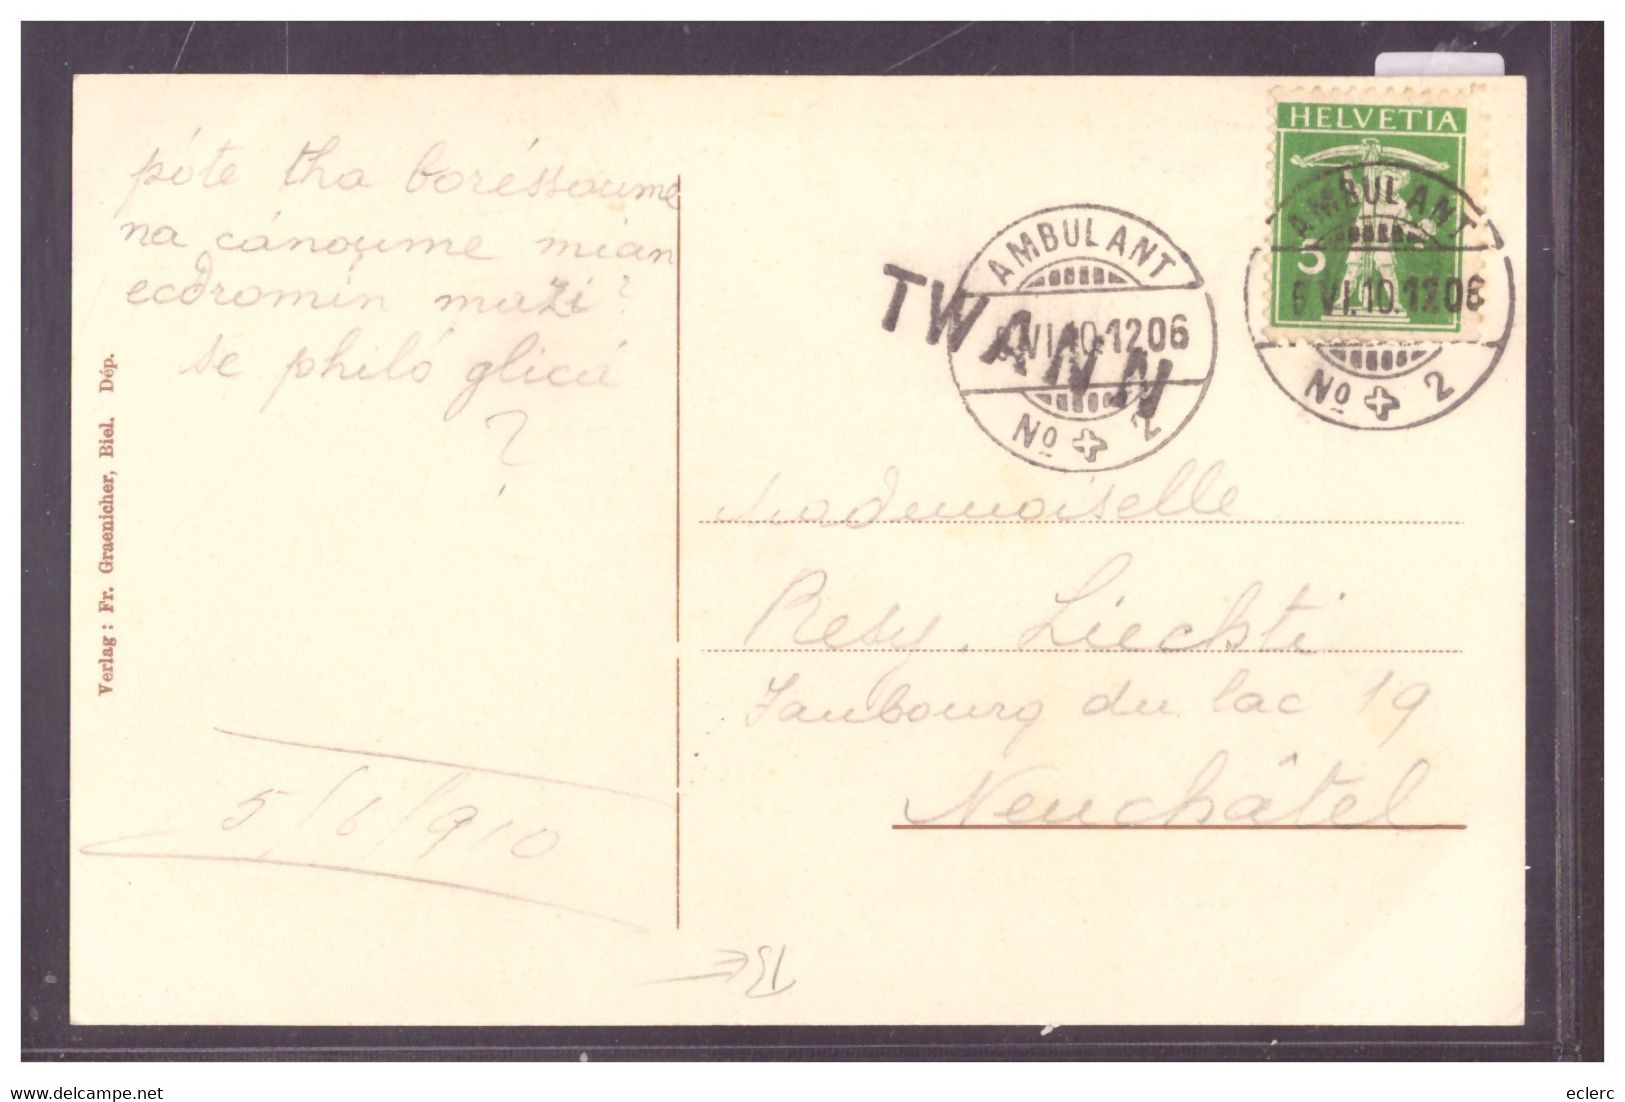 póte tha boréssoume
na cánoume mian
ecdromín mazí?
se philó glicá
?
5/6/910
Verlag: Fr. Graenicher, Biel. Dép.
HELVETIA
3
AMBULANT
6 VI.10.1206
No 2
AMBULANT
VI.10.1206
No 2
TWANN
Mademoiselle
Resy. Liechti
Faubourg du lac 19
Neuchâtel
eclerc